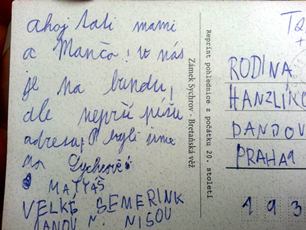 ahoj tati mami
a Mančo! U nás
je na bundu!
dle neprší píšu
adresu. Byli jsme
na Sychrově
MATYÁŠ
VELKÉ SEMERINK
JANOV N. NISOU
Reprint pohlednice z počátku 20. století
Zámek Sychrov - Bretaňská věž
RODINA
HANZLÍKO
DANDOV
PRAHA 1
193